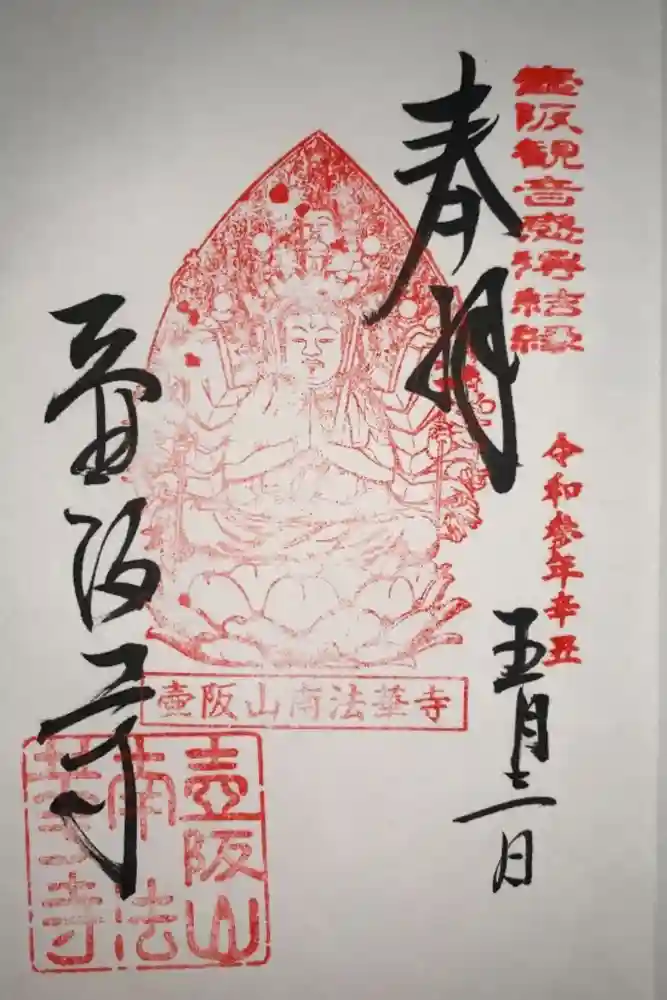 壺阪観音
結縁
令和参年辛丑
奉拝
五月
日
壺阪寺
壺阪山南法華寺
壺阪山
南法
華寺